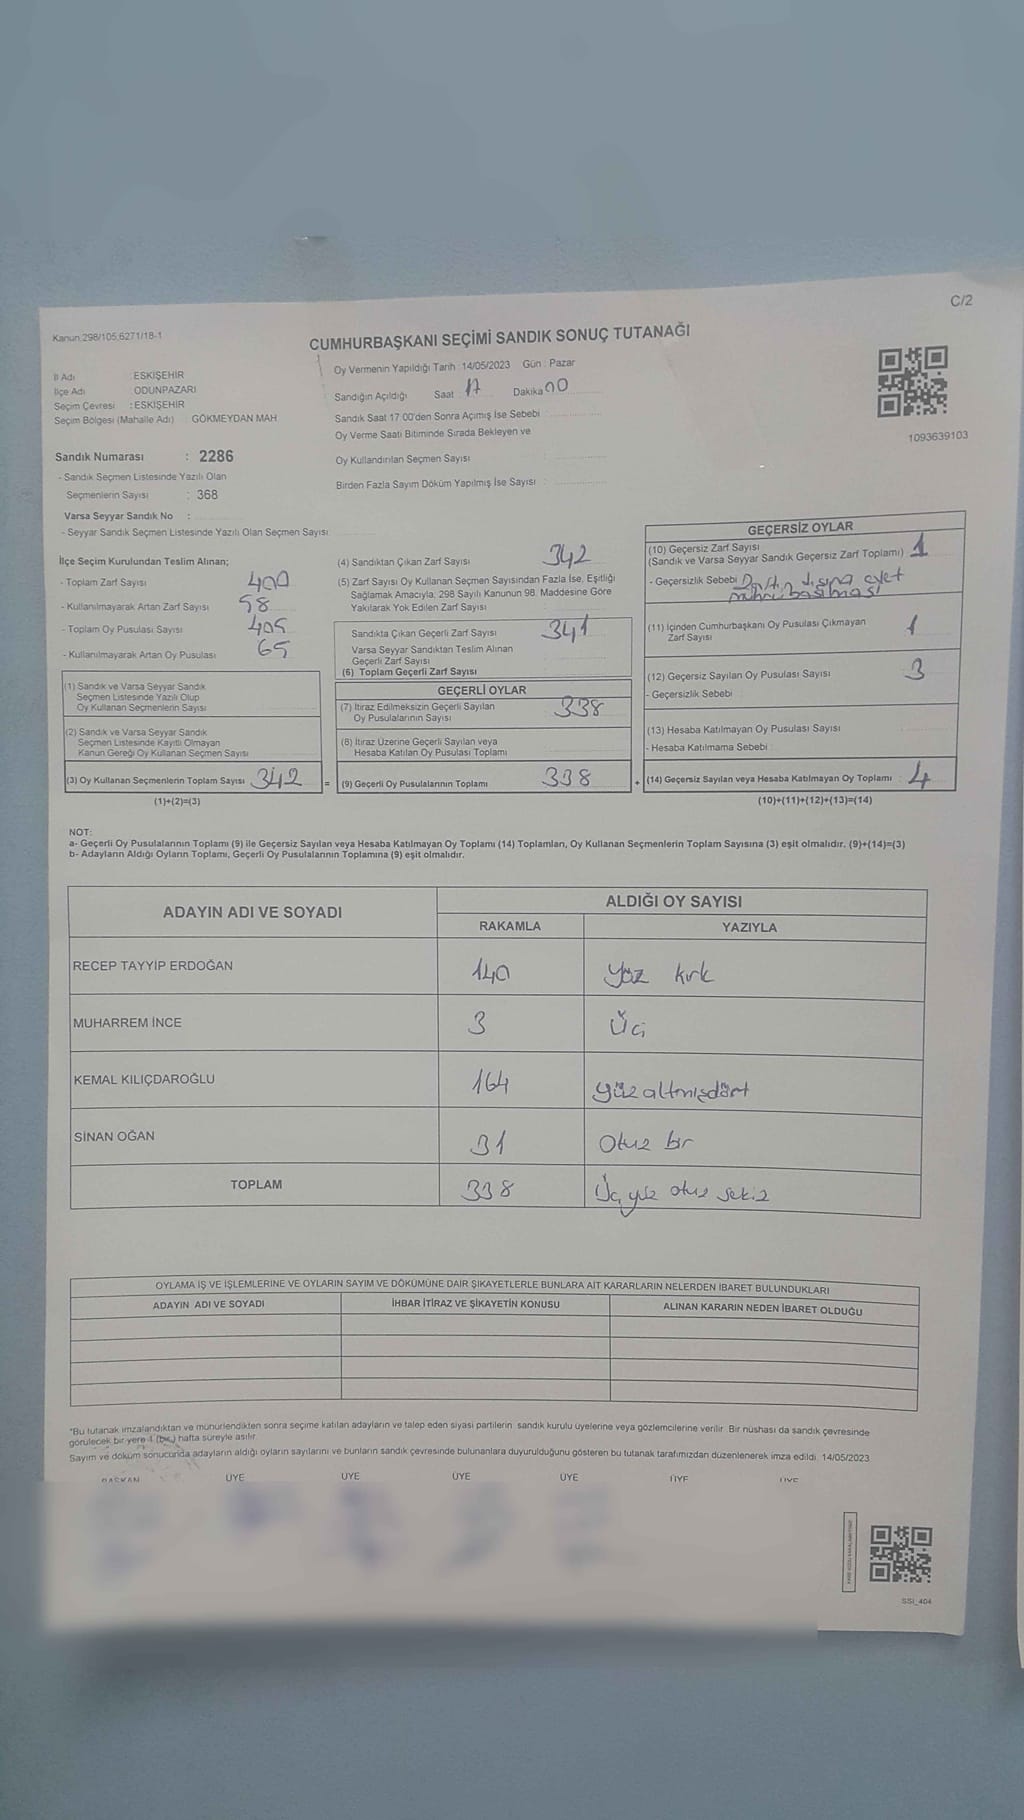 C/2
Kanun:298/105,6271/18-1
CUMHURBAŞKANI SEÇİMİ SANDIK SONUÇ TUTANAĞI
İl Adı : ESKİŞEHİR
İlçe Adı : ODUNPAZARI
Seçim Çevresi : ESKİŞEHİR
Seçim Bölgesi (Mahalle Adı) GÖKMEYDAN MAH
Oy Vermenin Yapıldığı Tarih : 14/05/2023 Gün : Pazar
Sandığın Açıldığı Saat 17 Dakika 00
Sandık Saat 17:00'den Sonra Açımış İse Sebebi
Oy Verme Saati Bitiminde Sırada Bekleyen ve
Oy Kullandırılan Seçmen Sayısı
Birden Fazla Sayım Döküm Yapılmış İse Sayısı
1093639103
Sandık Numarası : 2286
- Sandık Seçmen Listesinde Yazılı Olan
Seçmenlerin Sayısı : 368
Varsa Seyyar Sandık No :
- Seyyar Sandık Seçmen Listesinde Yazılı Olan Seçmen Sayısı
İlçe Seçim Kurulundan Teslim Alınan;
- Toplam Zarf Sayısı 400
- Kullanılmayarak Artan Zarf Sayısı 58
- Toplam Oy Pusulası Sayısı 405
- Kullanılmayarak Artan Oy Pusulası 65
(1) Sandık ve Varsa Seyyar Sandık
Seçmen Listesinde Yazılı Olup
Oy Kullanan Seçmenlerin Sayısı
(2) Sandık ve Varsa Seyyar Sandık
Seçmen Listesinde Kayıtlı Olmayan
Kanun Gereği Oy Kullanan Seçmen Sayısı
(3) Oy Kullanan Seçmenlerin Toplam Sayısı 342
(1)+(2)=(3)
(4) Sandıktan Çıkan Zarf Sayısı 342
(5) Zarf Sayısı Oy Kullanan Seçmen Sayısından Fazla İse, Eşitliği
Sağlamak Amacıyla; 298 Sayılı Kanunun 98. Maddesine Göre
Yakılarak Yok Edilen Zarf Sayısı
Sandıkta Çıkan Geçerli Zarf Sayısı 341
Varsa Seyyar Sandıktan Teslim Alınan
Geçerli Zarf Sayısı
(6) Toplam Geçerli Zarf Sayısı
GEÇERLİ OYLAR
(7) İtiraz Edilmeksizin Geçerli Sayılan
Oy Pusulalarının Sayısı 338
(8) İtiraz Üzerine Geçerli Sayılan veya
Hesaba Katılan Oy Pusulası Toplamı
= (9) Geçerli Oy Pusulalarının Toplamı 338
GEÇERSİZ OYLAR
(10) Geçersiz Zarf Sayısı
(Sandık ve Varsa Seyyar Sandık Geçersiz Zarf Toplamı) 1
- Geçersizlik Sebebi dışına evet
mührü basılması
(11) İçinden Cumhurbaşkanı Oy Pusulası Çıkmayan
Zarf Sayısı 1
(12) Geçersiz Sayılan Oy Pusulası Sayısı 3
- Geçersizlik Sebebi
(13) Hesaba Katılmayan Oy Pusulası Sayısı
- Hesaba Katılmama Sebebi
+ (14) Geçersiz Sayılan veya Hesaba Katılmayan Oy Toplamı : 4
(10)+(11)+(12)+(13)=(14)
NOT:
a- Geçerli Oy Pusulalarının Toplamı (9) ile Geçersiz Sayılan veya Hesaba Katılmayan Oy Toplamı (14) Toplamları, Oy Kullanan Seçmenlerin Toplam Sayısına (3) eşit olmalıdır. (9)+(14)=(3)
b- Adayların Aldığı Oyların Toplamı, Geçerli Oy Pusulalarının Toplamına (9) eşit olmalıdır.
ADAYIN ADI VE SOYADI ALDIĞI OY SAYISI
RAKAMLA YAZIYLA
RECEP TAYYİP ERDOĞAN 140 Yüz kırk
MUHARREM İNCE 3 Üç
KEMAL KILIÇDAROĞLU 164 yüzaltmışdört
SİNAN OĞAN 31 Otuz bir
TOPLAM 338 Üç yüz otuz sekiz
OYLAMA İŞ VE İŞLEMLERİNE VE OYLARIN SAYIM VE DÖKÜMÜNE DAİR ŞİKAYETLERLE BUNLARA AİT KARARLARIN NELERDEN İBARET BULUNDUKLARI
ADAYIN ADI VE SOYADI İHBAR İTİRAZ VE ŞİKAYETİN KONUSU ALINAN KARARIN NEDEN İBARET OLDUĞU
"Bu tutanak imzalandıktan ve mühürlendikten sonra seçime katılan adayların ve talep eden siyasi partilerin sandık kurulu üyelerine veya gözlemcilerine verilir. Bir nüshası da sandık çevresinde
görülecek bir yere 1 (bir) hafta süreyle asılır.
Sayım ve döküm sonucunda adayların aldığı oyların sayılarını ve bunların sandık çevresinde bulunanlara duyurulduğunu gösteren bu tutanak tarafımızdan düzenlenerek imza edildi. 14/05/2023
BAŞKAN ÜYE ÜYE ÜYE ÜYE ÜYE ÜYE
SSI_404